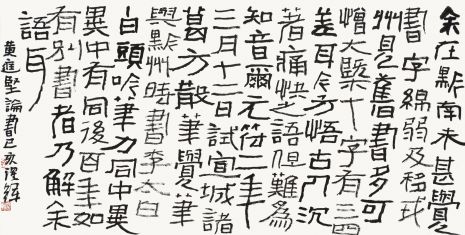 余在黔南未甚覺
書字綿弱及移戎
州見舊書多可
憎大槩十字有三四
差耳今方悟古人沉
著痛快之語但難為
知音爾元符二年
三月十二日試宣城諸
葛方散筆覺筆
與黔州時書李太白
白頭吟筆力同中異
異中有同後百年如
有別書者乃解余
語耳
黃庭堅論書己亥